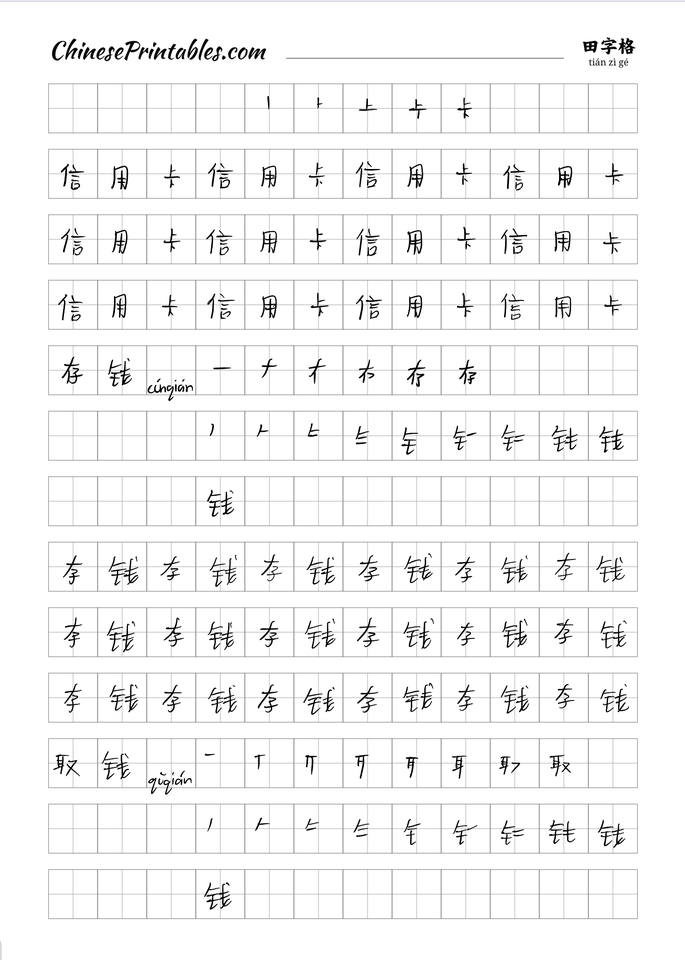 ChinesePrintables.com 田字格
tián zì gé
丨 卜 上 卡 卡
信 用 卡 信 用 卡 信 用 卡 信 用 卡
信 用 卡 信 用 卡 信 用 卡 信 用 卡
信 用 卡 信 用 卡 信 用 卡 信 用 卡
存 钱 cúnqián 一 ナ 存 存
钱
钱
存 钱 存 钱 存 钱 存 钱 存 钱 存 钱
存 钱 存 钱 存 钱 存 钱 存 钱 存 钱
存 钱 存 钱 存 钱 存 钱 存 钱 存 钱
取 钱 qǔqián 一 丅 耳 取 取
钱
钱